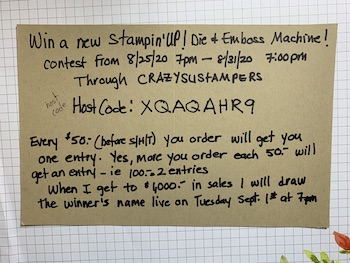 Win a new Stampin'UP! Die & Emboss Machine!
contest from 8/25/20 7pm — 8/31/20 7:00pm
Through CRAZYSUSTAMPERS
host code
Host Code: XQAQAHR9
Every $50.- (before S/H/T) you order will get you
one entry. Yes, more you order each 50.- will
get an entry - ie 100.- = 2 entries
When I get to $6000.- in sales I will draw
the winner's name live on Tuesday Sept. 1st at 7pm